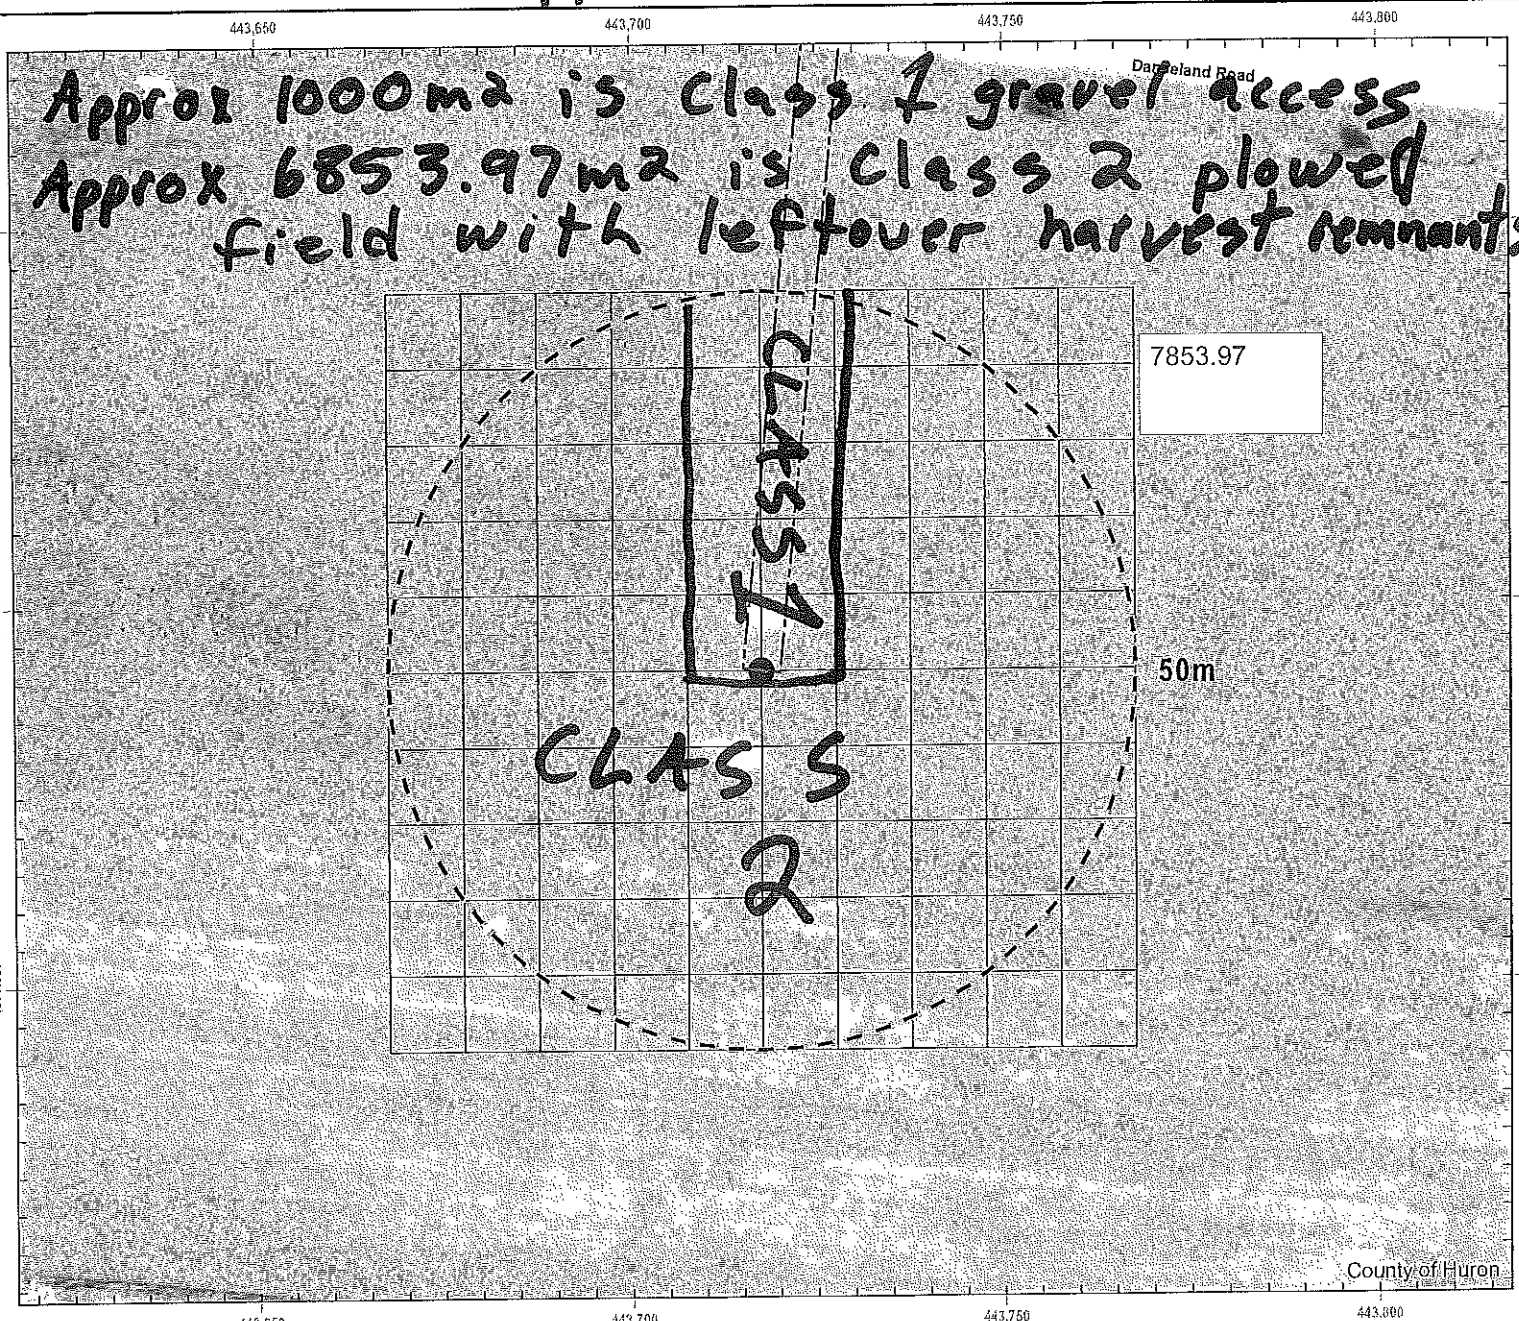 443,650 443,700 443,750 443,800
Dangeland Road
Approx 1000m2 is Class 1 gravel access
Approx 6853.97m2 is Class 2 plowed
field with leftover harvest remnants
7853.97
CLASS 1
50m
CLASS
2
County of Huron
443,700 443,750 443,800